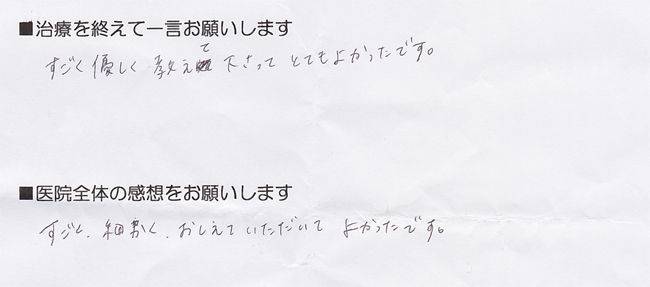 ■治療を終えて一言お願いします
すごく優しく教えて下さってとてもよかったです。
■医院全体の感想をお願いします
すごく、細かく、おしえていただいてよかったです。